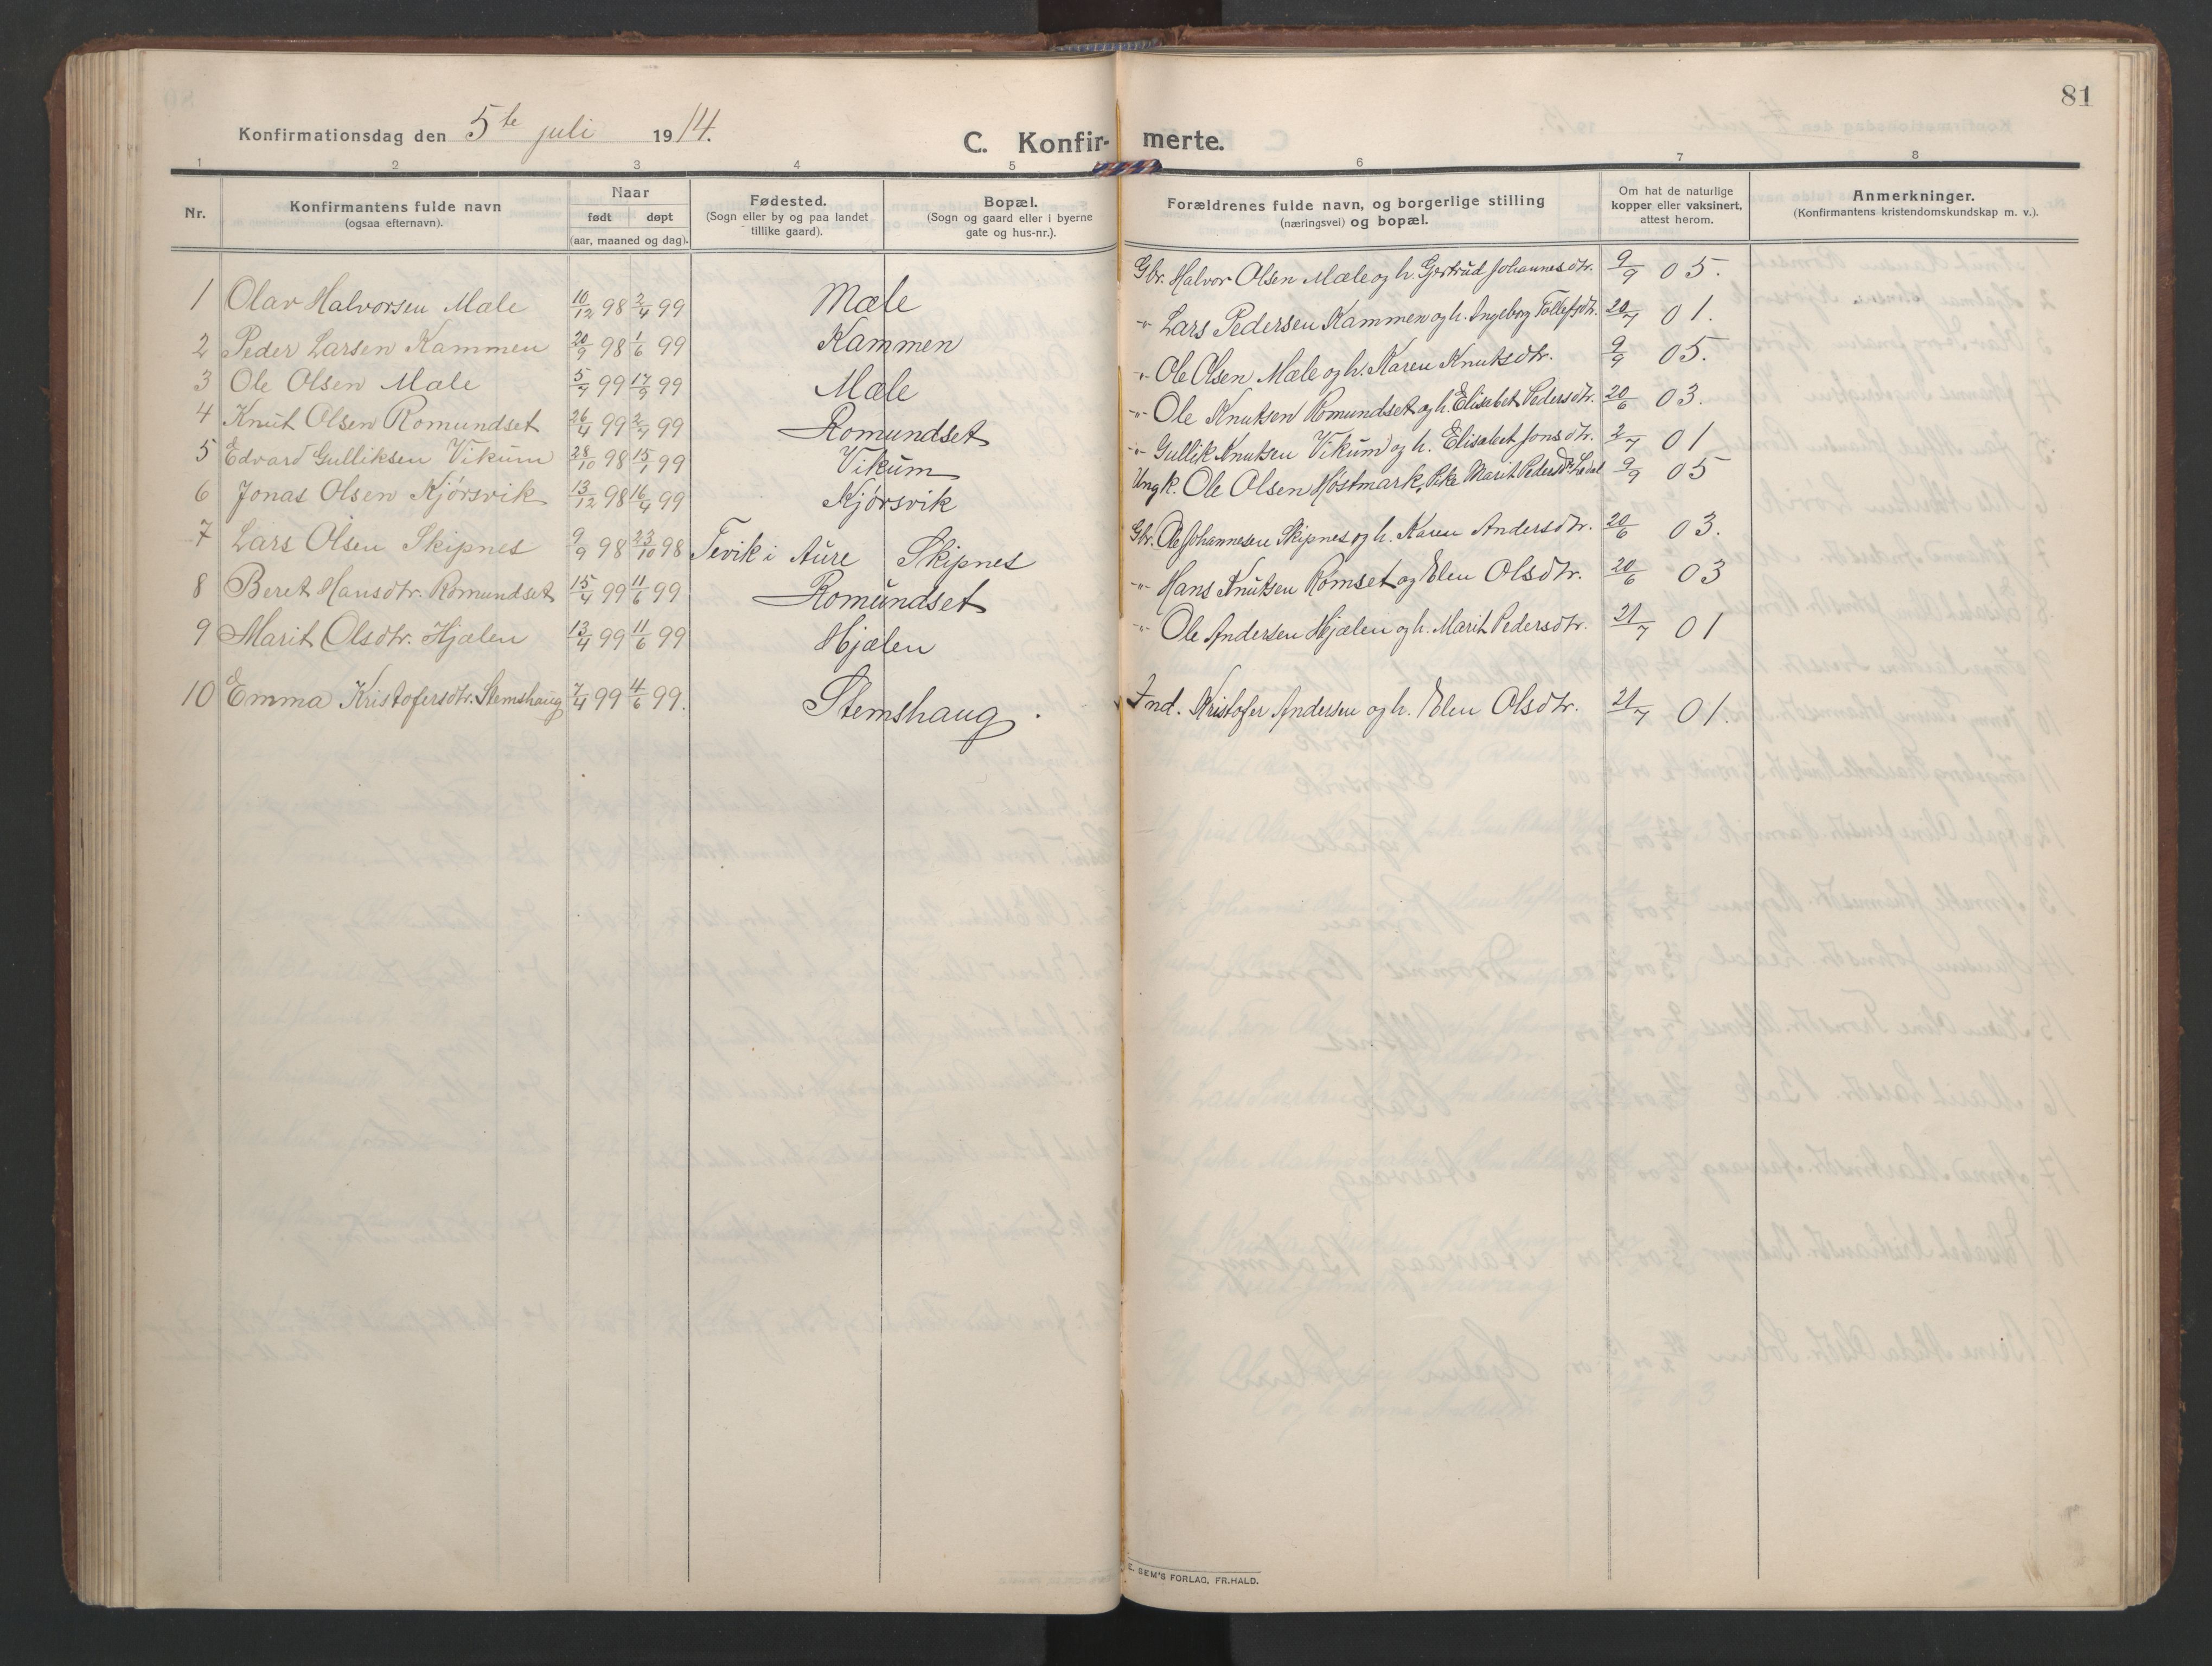 81
Konfirmationsdag den 5te juli 1914.
C. Konfir- merte.
1 2 3 4 5 6 7 8
Nr. Konfirmantens fulde navn (ogsaa efternavn). Naar født døpt (aar, maaned og dag). Fødested. (Sogn eller by og paa landet tillike gaard). Bopæl. (Sogn og gaard eller i byerne gate og hus-nr.). Forældrenes fulde navn, og borgerlige stilling (næringsvei) og bopæl. Om hat de naturlige kopper eller vaksinert, attest herom. Anmerkninger. (Konfirmantens kristendomskundskap m. v.).
1 Olav Halvorsen Mæle 10/12 98 2/4 99 Mæle Gbr. Halvor Olsen Mæle og h. Gjertrud Johannesdtr. 9/9 05.
2 Peder Larsen Kammen 20/9 98 1/6 99 Kammen -"- Lars Pedersen Kammen og h. Ingeborg Tollefsdtr. 20/7 01.
3 Ole Olsen Mæle 5/7 99 17/9 99 Mæle -"- Ole Olsen Mæle og h. Karen Knutsdtr. 9/9 05.
4 Knut Olsen Romundset 26/4 99 2/7 99 Romundset -"- Ole Knutsen Romundset og h. Elisabet Pedersdtr. 20/6 03.
5 Edvard Gulliksen Vikum 28/10 98 15/1 99 Vikum -"- Gullik Knutsen Vikum og h. Elisabet Jonsdtr. 2/7 01
6 Jonas Olsen Kjørsvik 13/12 98 16/4 99 Kjørsvik Ungk. Ole Olsen Høstmark, Pike Marit Pedersdtr. Ledal 9/9 05
7 Lars Olsen Skipnes 9/9 98 23/10 98 Tevik i Aure Skipnes Gbr. Ole Johannesen Skipnes og h. Karen Andersdtr. 20/6 03.
8 Beret Hansdtr. Romundset 15/4 99 11/6 99 Romundset -"- Hans Knutsen Romset og Elen Olsdtr. 20/6 03
9 Marit Olsdtr. Hjælen 13/4 99 11/6 99 Hjælen -"- Ole Andersen Hjælen og h. Marit Pedersdtr. 21/7 01
10 Emma Kristofersdtr. Stemshaug 7/4 99 4/6 99. Stemshaug. Ind. Kristofer Andersen og h. Elen Olsdtr. 21/7 01.
E. SEM'S FORLAG, FR.HALD.